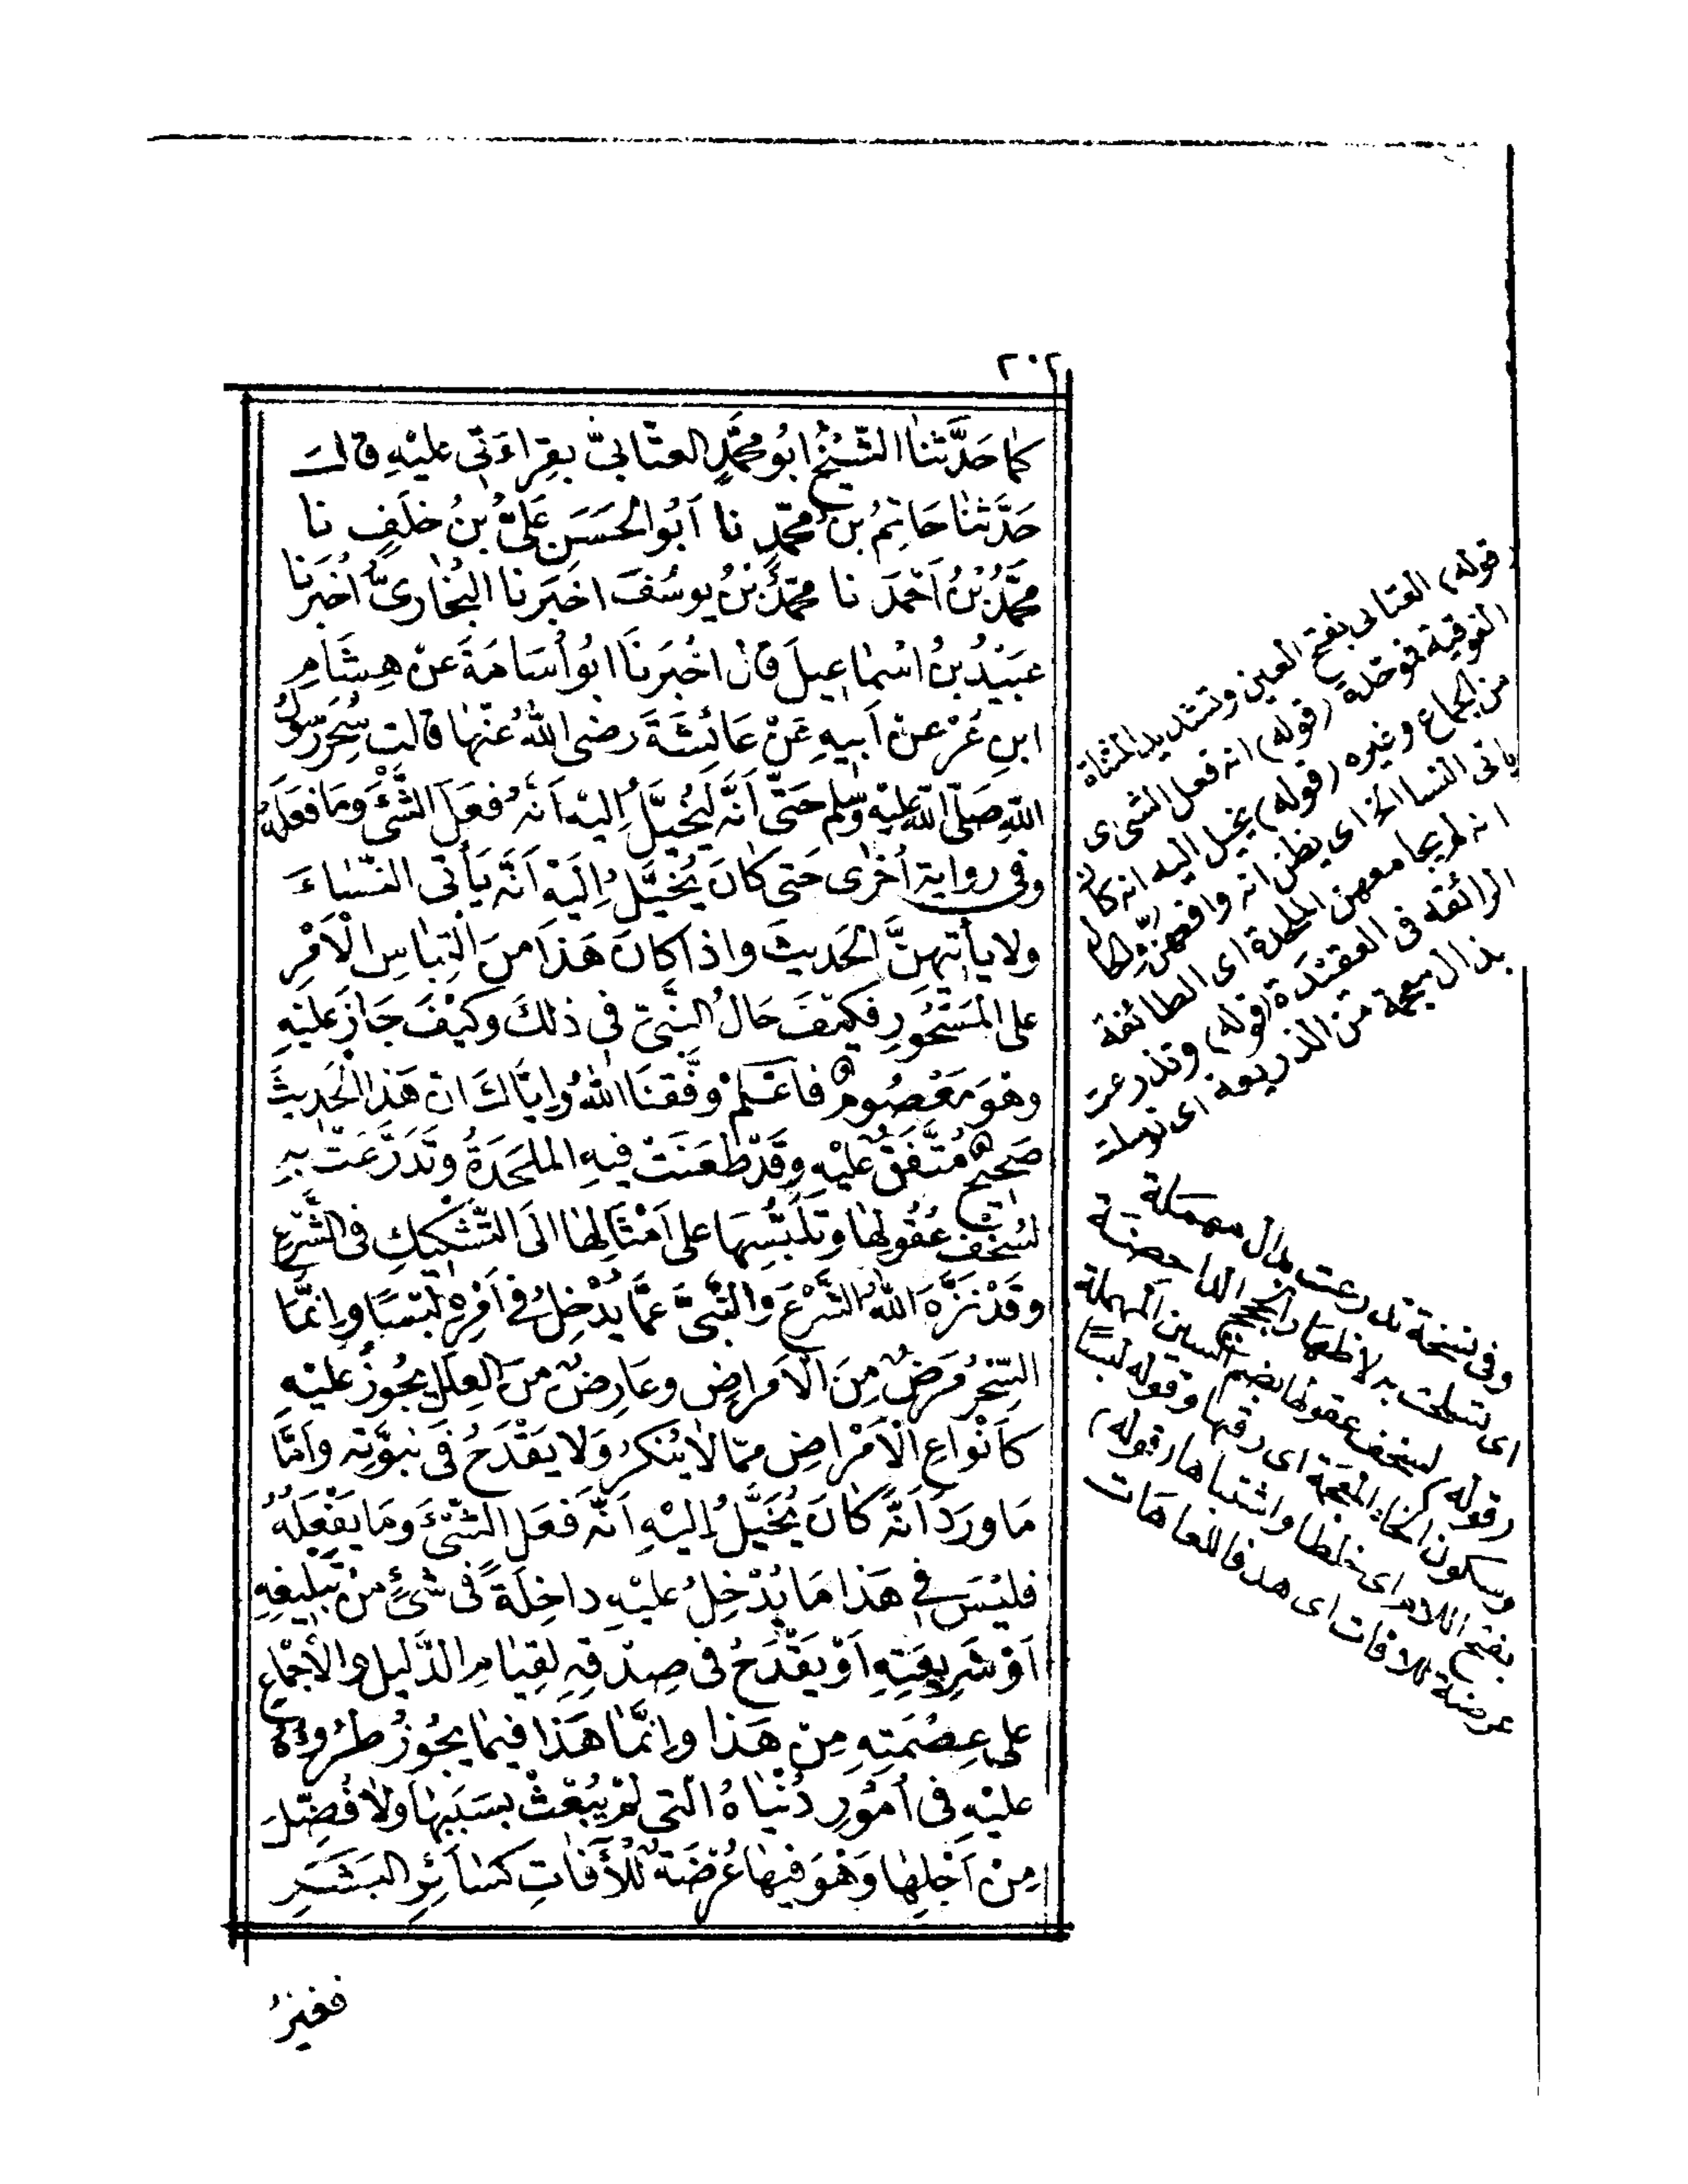 ٢٠٢
كما حَدَّثنا الشّيخ ابُو محمَّدٍ العتّابىّ بقِراءَتى عليْهِ قال
حَدَّثنا حَاتِمُ بن محمّدٍ نا اَبُو الحسَن عَلىُّ بنُ خلَفٍ نا
محمَّدُ بْنُ اَحْمَدَ نا محمَّدُ بنُ يوسُفَ اخبَرنا البُخارىُّ اَخبَرنَا
عبَيْدُ بنُ اسْماعيلَ قال اخْبَرنَا ابوُ اُسَامَةَ عَنْ هِشَامِ
ابنِ عُرْ عنْ اَبيهِ عَنْ عَائشَةَ رضى اللهُ عَنْها قالت سُحِرَ رسولُ
اللهِ صَلّى اللهُ عليْه وسلم حَتّى اَنَّهُ ليُخيَّلُ اِليْه اَنهُ فعَلَ الشَّئَ ومَا فعَلهُ
وفى روايةٍ اُخرٰى حَتى كانَ يُخيَّلُ اِليَهْ اَنَّه يَأتى النّسَاءَ
ولا يأتيهِنَّ الحَديثَ واذا كانَ هَذَا منَ الْتِبَاسِ الْاَمْرِ
على المَسْحُورِ فكيْفَ حَالُ النَّبىّ فى ذلكَ وكيْفَ جَازَ عليْهِ
وهْوَ مَعْصُومٌ فاعْلمْ وَفّقنَا اللهُ وَاِيّاكَ ان هَذا الحَديثَ
صَحيحٌ مُتّفَقٌ عليْهِ وقَدْ طعَنَتْ فيهِ الملحَدةُ وَتَدَرَّعَتْ بهِ
لسُخْف عُقُولِها وتَلَبُّسِهَا على اَمْثالِها الَى التّشْكيكِ فى الشَّرْع
وقَدْ نَزَّهَ اللهُ الشَّرْعَ والنَّبىَّ عمَّا يُدْخِلُ فى اَمْرِهِ لَبْسًا وَاِنَّمَا
السِّحْرُ مَرَضٌ مِنَ الْاَمرَاضِ وعَارِضٌ منَ العِلَلِ يجُوزُ عليْهِ
كاَنْواعِ الْاَمْرَاضِ ممّا لا يُنكَرُ وَلا يَقْدَحُ فى نبوَّتِه وَاَمَّا
مَا ورَدَ اَنَّهُ كانَ يُخَيَّلُ اِليْهِ اَنَّه فَعَل الشّئَ ومَا يَفْعَلُهُ
فليْسَ فى هَذا مَا يُدْخِلُ عليْهِ داخِلَةً فى شئٍ منْ تَبْليغِهِ
اَوْ شَريعَتِهِ اَوْ يَقْدَحُ فى صِدْقِهِ لقِيَامِ الدَّليلِ والْاِجْمَاعِ
على عِصْمَتِهِ مِنْ هَذا وَاِنَّمَا هَذا فيما يجُوزُ طرُوءُهُ
عليْهِ فى اُمُورِ دُنْيَاهُ الّتى لَمْ يُبْعَثْ بسَبَبِها وَلا فُضِّلَ
مِنْ اَجْلِهَا وَهْوَ فيها عُرْضَةٌ لْلْآفاتِ كسَائِرِ البَشَرِ
فغيرُ
(قوله) العتابى بفتح العين وتشديد المثناة
الفوقية فموحّدة (قوله) انه فعل الشئ اى
من الجماع وغيره (قوله) يخيل اليه انه كان
ياتى النسا الخ اى يظن انه واقعهن
انه لم يجامعهن الملحدة اى الطائفة
الزائغة فى العقيدة (قوله) وتذرعت
بذال معجمة من الذريعة اى توسلت
وفى نسخة تدرعت بدال مهملة
اى تسلحت به لاظهار الحجج الداحضة
(قوله) لسخف عقولها بضم السين المهملة
وسكون الخاء المعجمة اى رقتها وقوله لبسًا
بفتح اللام اى خلطا واشتباها (قوله)
عرضة للافات اى هدفا للعاهات